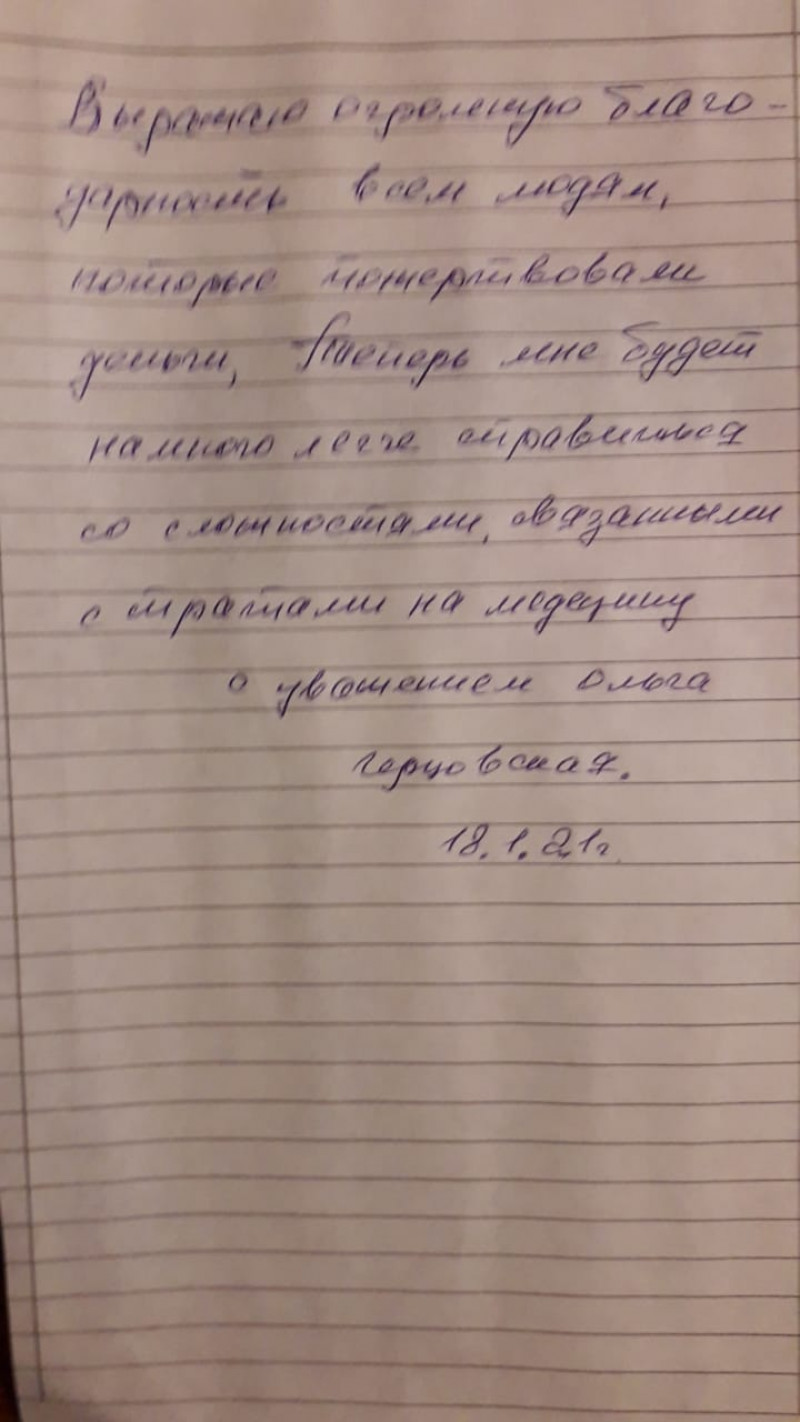 Выражаю огромную благо-
дарность всем людям,
которые пожертвовали
деньги, Теперь мне будет
намного легче справиться
со сложностями, связанными
с тратами на медецину
с уважением Ольга
Герцовская.
18.1.21г.